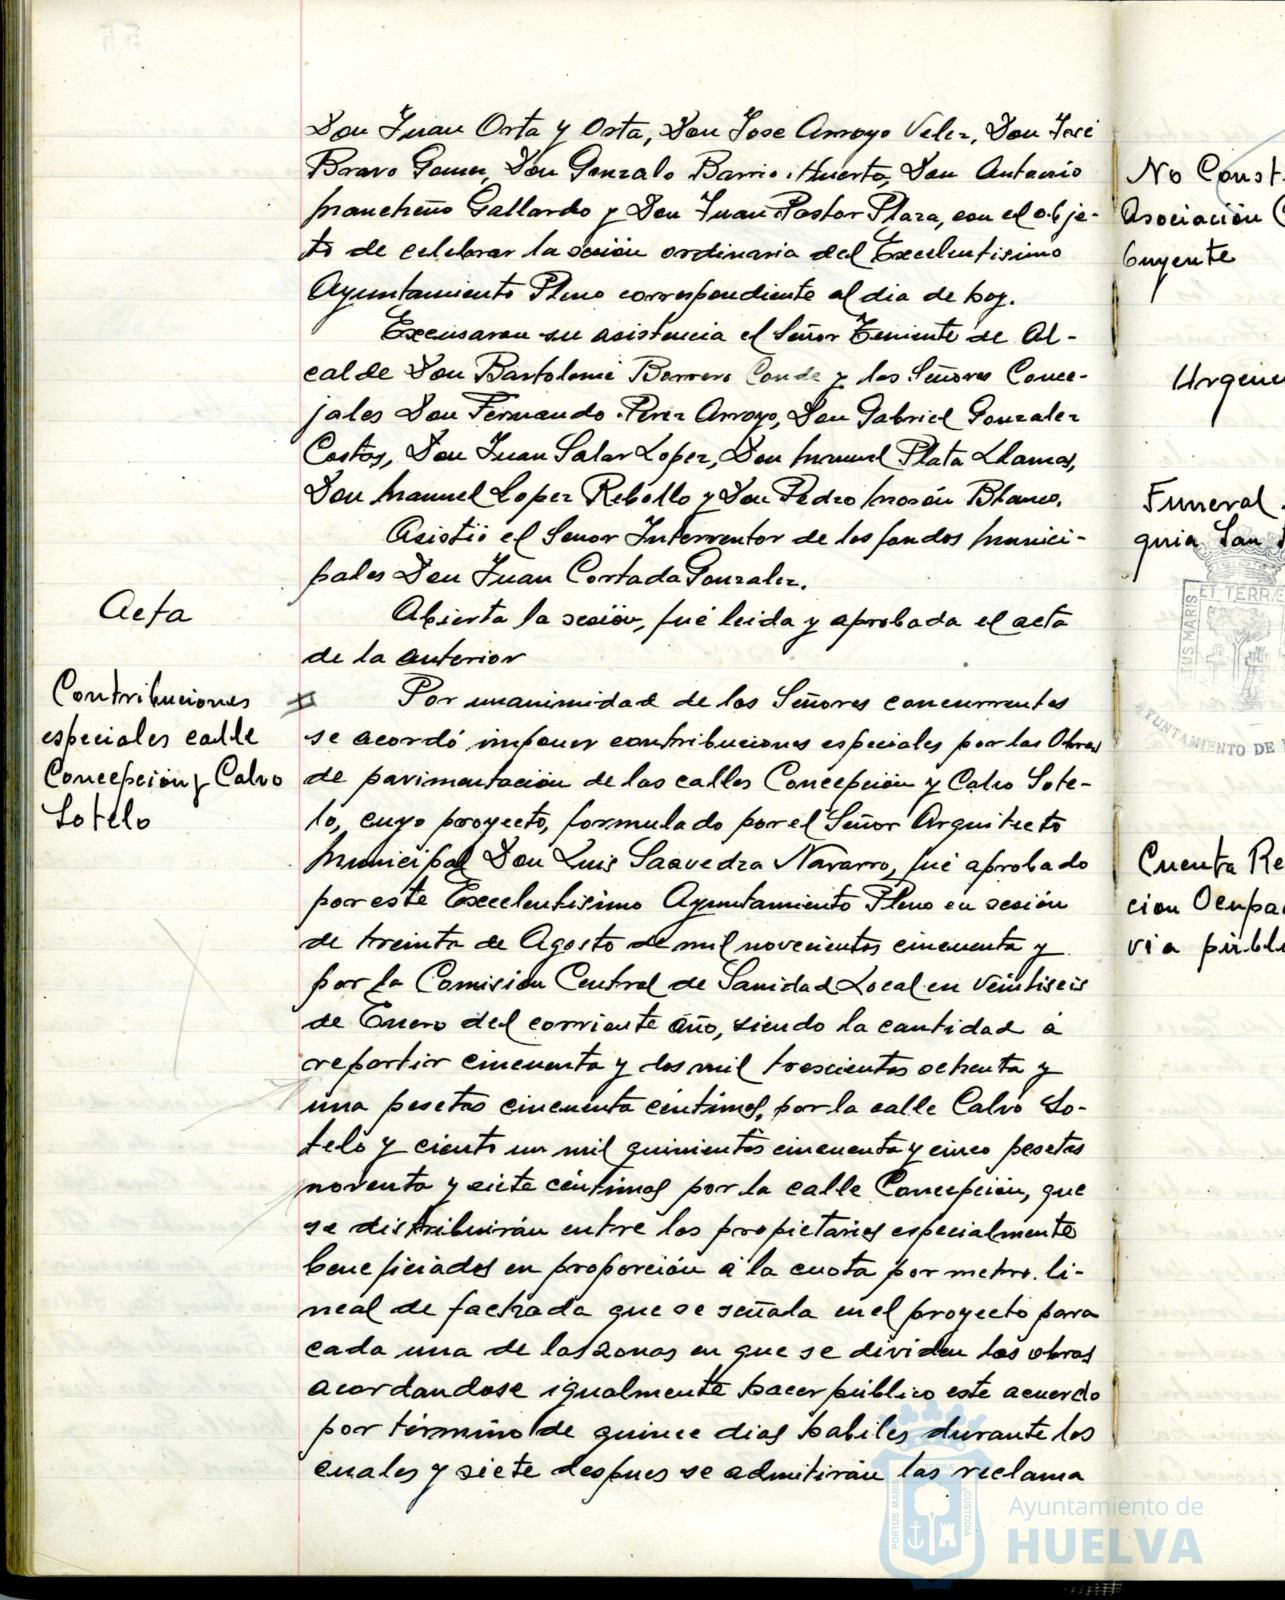 Don Juan Orta y Orta, Don Jose Arroyo Velez, Don José
Bravo Gomez, Don Gonzalo Barrio Huerta, Don Antonio
Mancheño Gallardo y Don Juan Pastor Plaza, con el obje-
to de celebrar la sesión ordinaria del Excelentisimo
Ayuntamiento Pleno correspondiente al dia de hoy.
Excusaron su asistencia el Señor Teniente de Al-
calde Don Bartolomé Borrero Conde y los Señores Conce-
jales Don Fernando Perez Arroyo, Don Gabriel Gonzalez
Don Juan Salas Lopez, Don Manuel Plata Llamas,
Don Manuel Lopez Rebollo y Don Pedro Morón Blanco.
Asistió el Señor Interventor de los fondos Munici-
pales Don Juan Cortada Gonzalez.
Acta
Abierta la sesión, fué leida y aprobada el acta
de la anterior
Contribuciones
especiales calle
Concepción y Calvo
Sotelo
Por unanimidad de los Señores concurrentes
se acordó imponer contribuciones especiales por las Obras
de pavimentación de las calles Concepción y Calvo Sote-
lo, cuyo proyecto, formulado por el Señor Arquitecto
Municipal Don Luis Saavedra Navarro, fué aprobado
por este Excelentisimo Ayuntamiento Pleno en sesión
de treinta de Agosto de mil novecientos cincuenta y
por la Comisión Central de Sanidad Local en veintiseis
de Enero del corriente año, siendo la cantidad á
repartir cincuenta y dos mil trescientas ochenta y
una pesetas cincuenta céntimos, por la calle Calvo So-
telo y ciento un mil quinientas cincuenta y cinco pesetas
noventa y siete céntimos por la calle Concepción, que
se distribuirán entre los propietarios especialmente
beneficiados en proporción á la cuota por metro li-
neal de fachada que se señala en el proyecto para
cada una de las zonas en que se dividen las obras
acordandose igualmente hacer público este acuerdo
por término de quince dias habiles durante los
cuales y siete despues se admitirán las reclama
No Const.
Asociación C
buyente
Urgenc
Funeral
quia San
ET TERRÆ
TUS MARIS
AYUNTAMIENTO DE
Cuenta Re
cion Ocupa
via públi
PORTUS MARIS
CUSTODIA
Ayuntamiento de
HUELVA